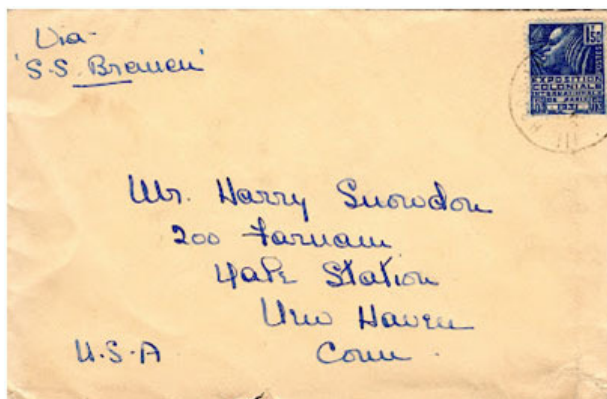 Via
'S.S. Bremen'
1F50
POSTES
EXPOSITION
COLONIALE
INTERNATIONALE
DE PARIS
1931
Mr. Harry Snowdon
200 Farnam
Yale Station
New Haven
U.S.A Conn.